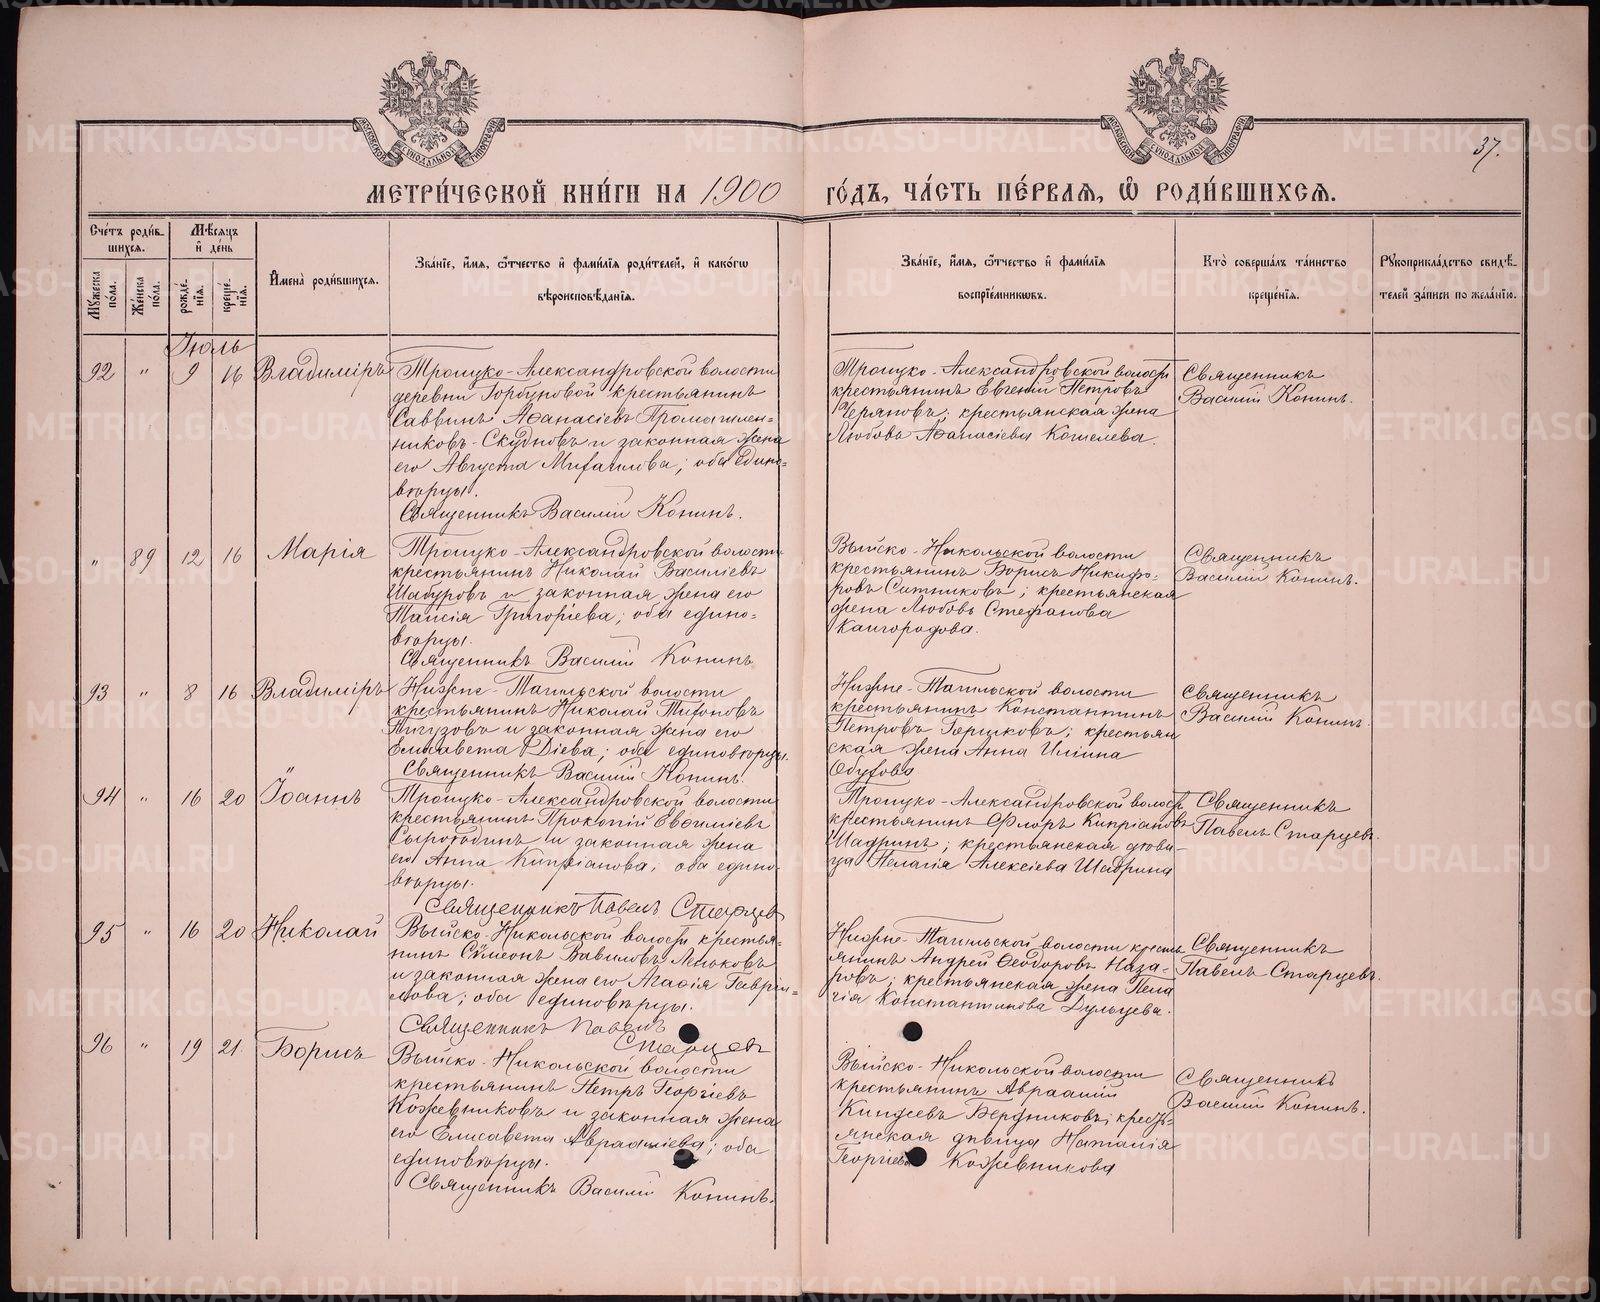 37.
МЕТРИЧЕСКОЙ КНИГИ НА 1900 ГОДЪ, ЧАСТЬ ПЕРВАЯ, Ѡ РОДИВШИХСЯ.
Счетъ родив-
шихся.
Мужеска пола.
Женска пола.
Мѣсяцъ и день
рожде-
нія.
креще-
нія.
Имена родившихся.
Званіе, имя, ѻтчество и фамилія родителей, и какогѡ
вѣроисповѣданія.
Званіе, имя, ѻтчество и фамилія
воспріемникѡвъ.
Кто совершалъ таинство
крещенія.
Рукоприкладство свидѣ-
телей записи по желанію.
Іюль
92 " 9 16 Владиміръ
Троицко-Александровской волости
деревни Горбуновой крестьянинъ
Саввинъ Аѳанасіевъ Промышлен-
никовъ-Скудновъ и законная жена
его Августа Михаилова; оба едино-
вѣрцы.
Священникъ Василій Конинъ.
Троицко-Александровской волости
крестьянинъ Евгеній Петровъ
Черяновъ; крестьянская жена
Любовь Аѳанасіева Кошелева.
Священникъ
Василій Конинъ.
" 89 12 16 Марія
Троицко-Александровской волости
крестьянинъ Николай Василіевъ
Шабуровъ и законная жена его
Таисія Григоріева; оба едино-
вѣрцы.
Священникъ Василій Конинъ
Выйско-Никольской волости
крестьянинъ Борисъ Никифо-
ровъ Ситниковъ; крестьянская
жена Любовь Стефанова
Кайгородова.
Священникъ
Василій Конинъ.
93 " 8 16 Владиміръ
Нижне-Тагильской волости
крестьянинъ Николай Тихоновъ
Пигузовъ и законная жена его
Елисавета Діева; оба единовѣрцы.
Священникъ Василій Конинъ.
Нижне-Тагильской волости
крестьянинъ Константинъ
Петровъ Горшковъ; крестьян
ская жена Анна Иліина
Обухова
Священникъ
Василій Конинъ.
94 " 16 20 Іоаннъ
Троицко-Александровской волости
крестьянинъ Прокопій Евѳиміевъ
Сыропдинъ и законная жена
его Анна Кипріанова; оба едино-
вѣрцы.
Священникъ Павелъ Старцевъ
Троицко-Александровской волости
крестьянинъ Флоръ Кипріановъ
Шадринъ; крестьянская дѣви-
ца Пелагія Алексіева Шадрина
Священникъ
Павелъ Старцевъ.
95 " 16 20 Николай
Выйско-Никольской волости крестья-
нинъ Сѵмеонъ Вавиловъ Леньковъ
и законная жена его Агаѳія Гаврі-
илова; оба единовѣрцы.
Священникъ Павелъ
Старцевъ
Нижне-Тагильской волости кресть
янинъ Андрей Ѳеодоровъ Наза-
ровъ; крестьянская жена Пела
гія Константинова Дульцева.
Священникъ
Павелъ Старцевъ.
96 " 19 21 Борисъ
Выйско-Никольской волости
крестьянинъ Петръ Георгіевъ
Кожевниковъ и законная жена
его Елисавета Аврааміева; оба
единовѣрцы.
Священникъ Василій Конинъ.
Выйско-Никольской волости
крестьянинъ Авраамій
Бердниковъ; кресть-
янская дѣвица Наталія
Георгіева Кожевникова
Священникъ
Василій Конинъ.
METRIKI.GASO-URAL.RU